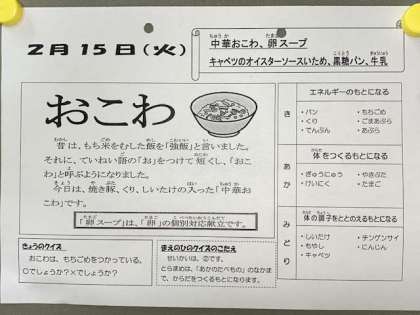 2月15日(火)
中華おこわ、卵スープ
キャベツのオイスターソースいため、黒糖パン、牛乳
おこわ
昔は、もち米をむした飯を「強飯」と言いました。
それに、ていねい語の「お」をつけて短くし、「おこ
わ」と呼ぶようになりました。
今日は、焼き豚、くり、しいたけの入った「中華お
こわ」です。
「卵スープ」は、「卵」の個別対応献立です。
きょうのクイズ
おこわは、もちごめをつかっている。
○でしょうか?×でしょうか?
まえのひのクイズのこたえ
せいかいは、②です。
とらまめは、「あかのたべもの」のなかま
で、からだをつくるもとになります。
き
エネルギーのもとになる
・パン
・くり
・でんぷん
・もちごめ
・ごまあぶら
・あぶら
あか
体をつくるもとになる
・ぎゅうにゅう
・けいにく
・やきぶた
・たまご
みどり
体の調子をととのえるもとになる
・しいたけ
・もやし
・キャベツ
・チンゲンサイ
・にんじん